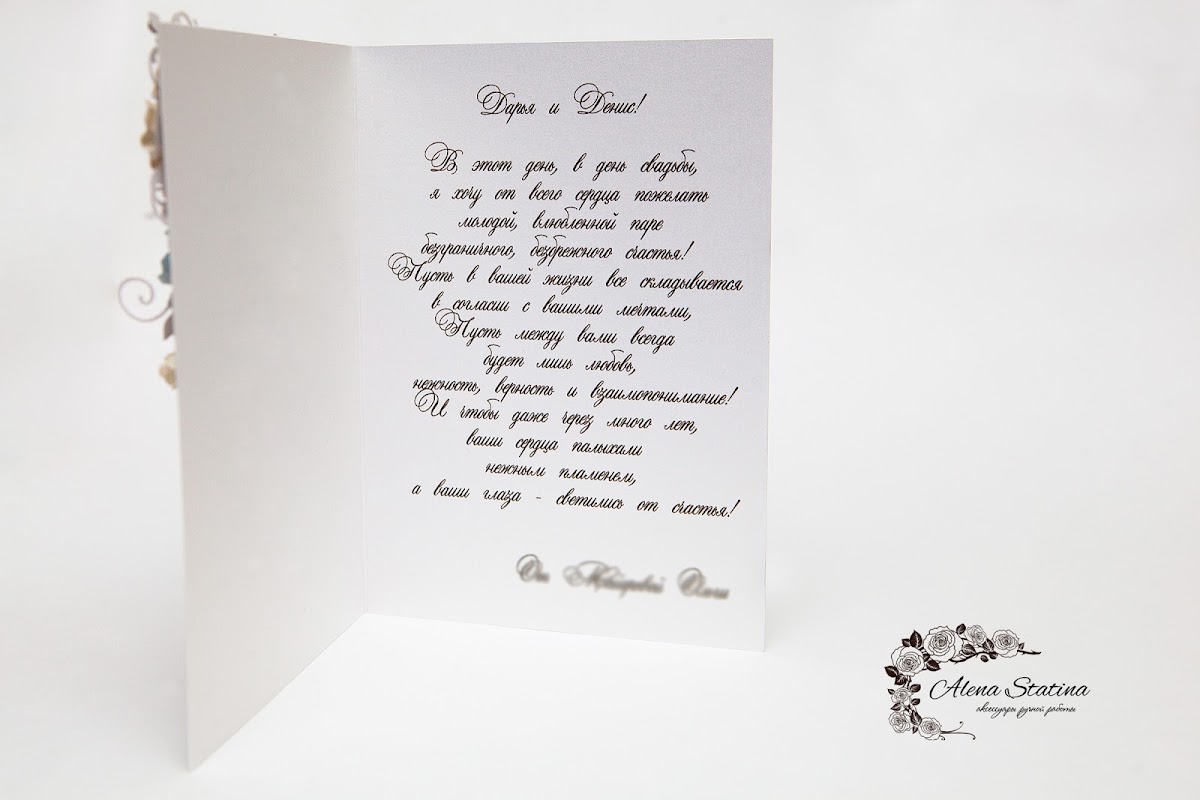 Дарья и Денис!
В этот день, в день свадьбы,
я хочу от всего сердца пожелать
молодой, влюбленной паре
безграничного, безбрежного счастья!
Пусть в вашей жизни все складывается
в согласии с вашими мечтами,
Пусть между вами всегда
будет лишь любовь,
нежность, верность и взаимопонимание!
И чтобы даже через много лет,
ваши сердца палыхали
нежным пламенем,
а ваши глаза - светились от счастья!
Alena Statina
аксессуары ручной работы